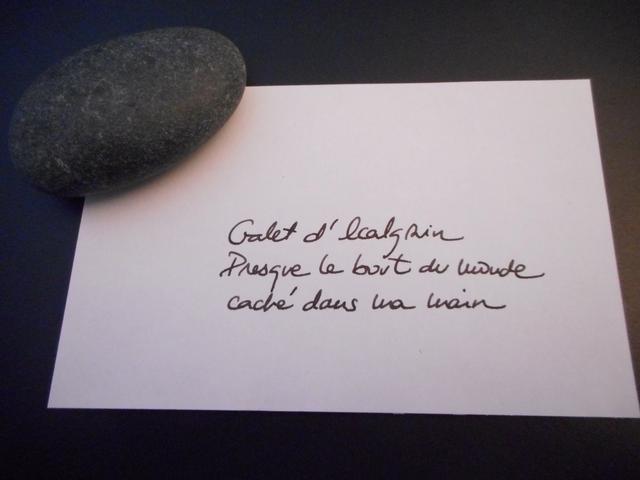 Galet d'Ecalgrain
Presque le bout du monde
caché dans ma main